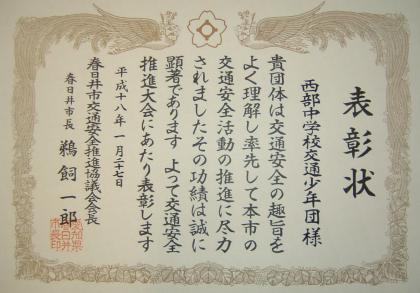 表彰状
西部中学校交通少年団様
貴団体は交通安全の趣旨を
よく理解し率先して本市の
交通安全活動の推進に尽力
されましたその功績は誠に
顕著であります よって交通安全
推進大会にあたり表彰します
平成十八年一月二十七日
春日井市交通安全推進協議会会長
春日井市長 鵜飼一郎
愛知県
春日井
市長印